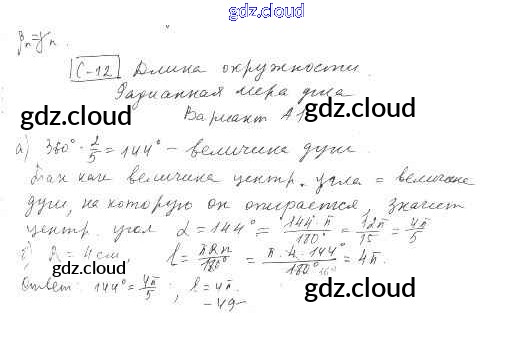 gdz.cloud
βₙ=γₙ.
С-12 Длина окружности.
Радианная мера угла
gdz.cloud gdz.cloud
Вариант А1
а) 360° · 2/5 = 144° – величина дуги.
Так как величина центр. угла = величине
дуги, на которую он опирается, значит
gdz.cloud gdz.cloud
центр. угол α = 144° = 144·π/180° = 12π/15 = 4π/5
R = 4 см, l = πRn/180° = π·4·144°/180° = 4π.
gdz.cloud
Ответ: 144° = 4π/5; l = 4π.
gdz.cloud
-49-